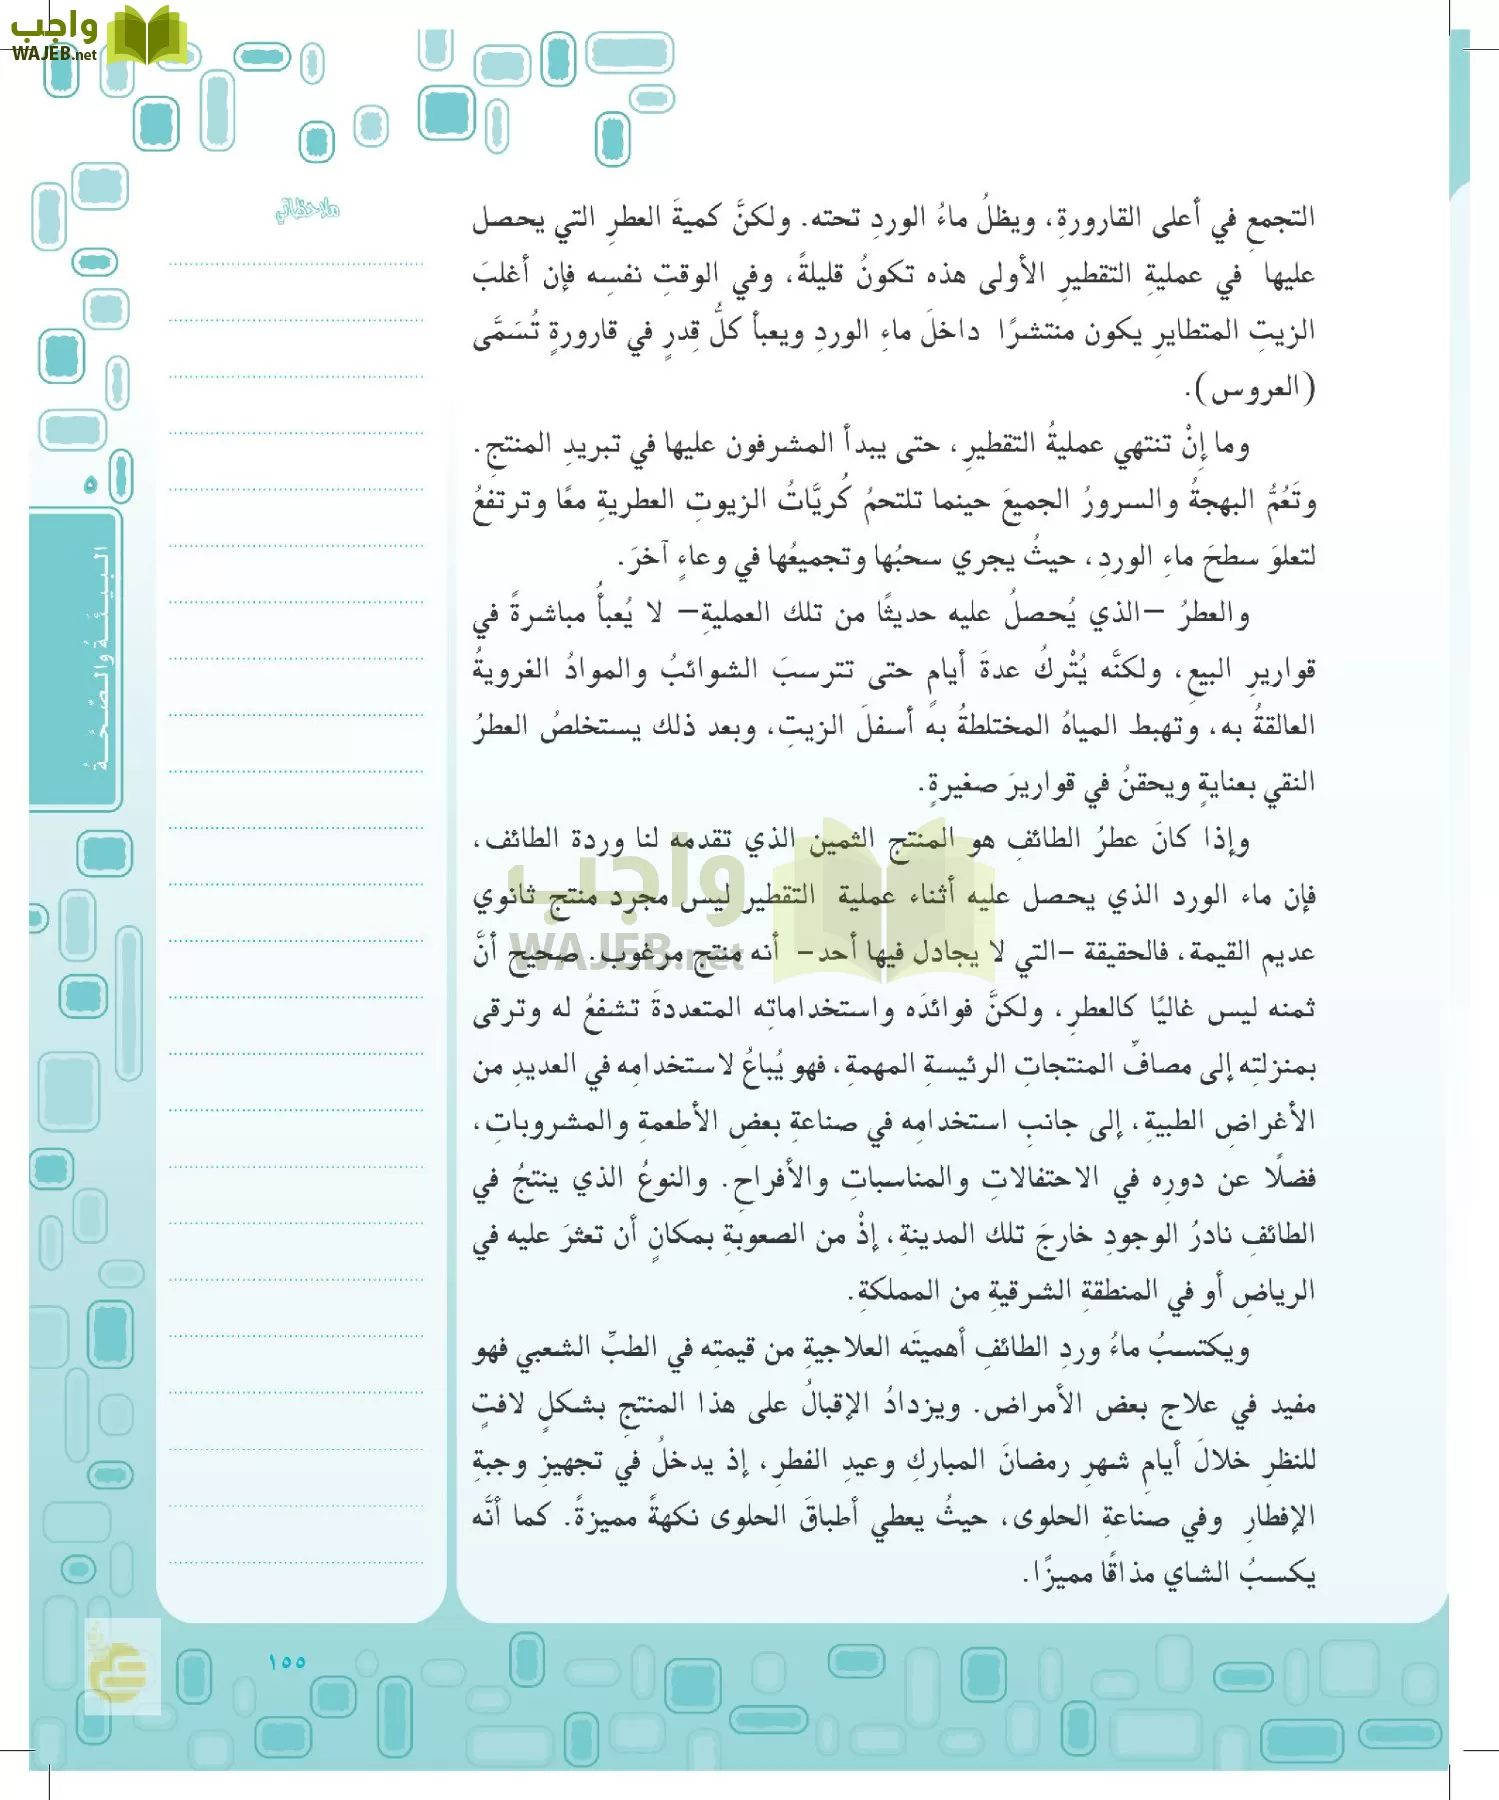 واجب
WAJEB.net
ملاحظاتي
التجمعِ في أعلى القارورةِ، ويظلُ ماءُ الوردِ تحته. ولكنَّ كميةَ العطرِ التي يحصل
عليها في عمليةِ التقطيرِ الأولى هذه تكونُ قليلةً، وفي الوقتِ نفسِه فإن أغلبَ
الزيتِ المتطايرِ يكون منتشرًا داخلَ ماءِ الوردِ ويعبأ كلُّ قِدرٍ في قارورةٍ تُسَمَّى
(العروس).
وما إِنْ تنتهي عمليةُ التقطيرِ، حتى يبدأ المشرفون عليها في تبريدِ المنتجِ.
وتَعُمُّ البهجةُ والسرورُ الجميعَ حينما تلتحمُ كُريَّاتُ الزيوتِ العطريةِ معًا وترتفعُ
لتعلوَ سطحَ ماءِ الوردِ، حيثُ يجري سحبُها وتجميعُها في وعاءٍ آخرَ.
والعطرُ –الذي يُحصلُ عليه حديثًا من تلك العمليةِ– لا يُعبأُ مباشرةً في
قواريرِ البيعِ، ولكنَّه يُتْركُ عدةَ أيامٍ حتى تترسبَ الشوائبُ والموادُ الغرويةُ
العالقةُ به، وتهبط المياهُ المختلطةُ به أسفلَ الزيتِ، وبعد ذلك يستخلصُ العطرُ
النقي بعنايةٍ ويحقنُ في قواريرَ صغيرةٍ.
وإذا كانَ عطرُ الطائفِ هو المنتج الثمين الذي تقدمه لنا وردة الطائف،
فإن ماء الورد الذي يحصل عليه أثناء عملية التقطير ليس مجرد منتج ثانوي
عديم القيمة، فالحقيقة –التي لا يجادل فيها أحد– أنه منتج مرغوب. صحيح أنَّ
ثمنه ليس غاليًا كالعطرِ، ولكنَّ فوائدَه واستخداماتِه المتعددةَ تشفعُ له وترقى
بمنزلتِه إلى مصافِّ المنتجاتِ الرئيسةِ المهمةِ، فهو يُباعُ لاستخدامِه في العديدِ من
الأغراضِ الطبيةِ، إلى جانبِ استخدامِه في صناعةِ بعضِ الأطعمةِ والمشروباتِ،
فضلًا عن دورِه في الاحتفالاتِ والمناسباتِ والأفراحِ. والنوعُ الذي ينتجُ في
الطائفِ نادرُ الوجودِ خارجَ تلك المدينةِ، إذْ من الصعوبةِ بمكانٍ أن تعثرَ عليه في
الرياضِ أو في المنطقةِ الشرقيةِ من المملكةِ.
ويكتسبُ ماءُ وردِ الطائفِ أهميتَه العلاجيةِ من قيمتِه في الطبِّ الشعبي فهو
مفيد في علاج بعض الأمراض. ويزدادُ الإقبالُ على هذا المنتجِ بشكلٍ لافتٍ
للنظرِ خلالَ أيامِ شهرِ رمضانَ المباركِ وعيدِ الفطرِ، إذ يدخلُ في تجهيزِ وجبةِ
الإفطارِ وفي صناعةِ الحلوى، حيثُ يعطي أطباقَ الحلوى نكهةً مميزةً. كما أنَّه
يكسبُ الشاي مذاقًا مميزًا.
٥
البيئةُ والصّحّةُ
واجب
WAJEB.net
١٥٥